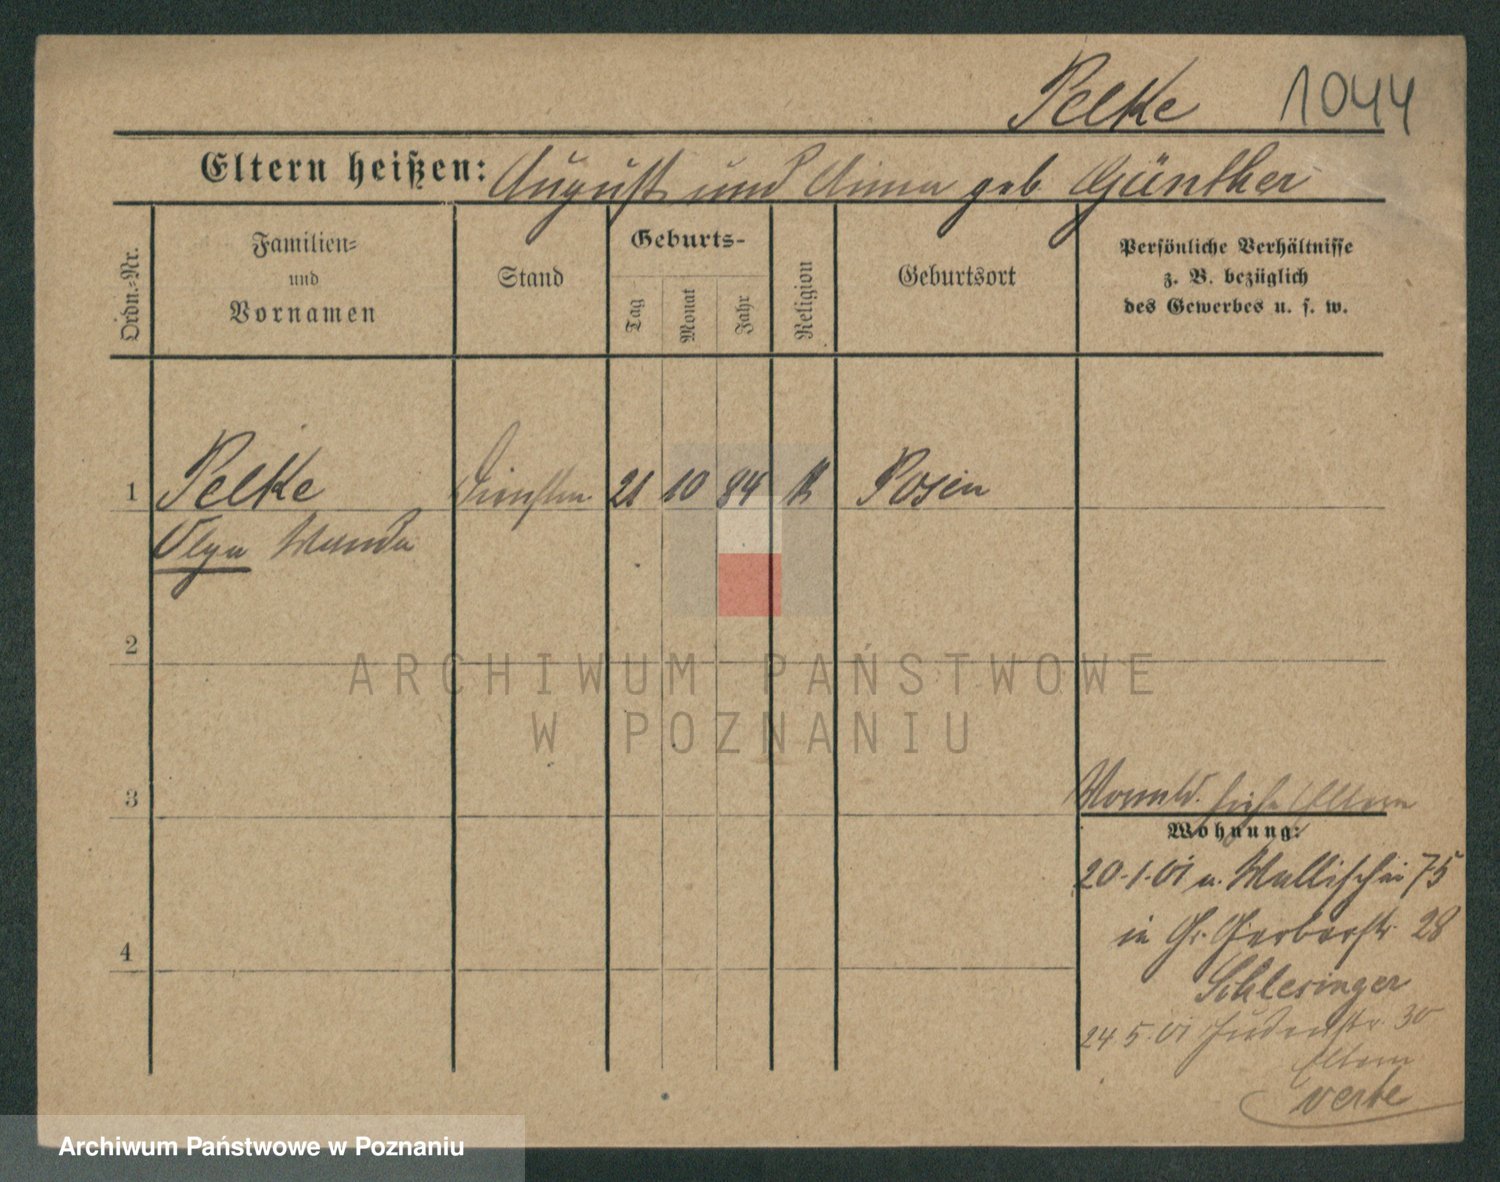 Pelke 1044
Eltern heißen: August und Anna geb. Günther
Ordn.-Nr.
Familien-
und
Vornamen
Stand
Geburts-
Tag
Monat
Jahr
Religion
Geburtsort
Persönliche Verhältnisse
z. B. bezüglich
des Gewerbes u. s. w.
1 Pelke 21 10 84 K Posen
Olga Wanda
2
3
4
siehe Eltern
Wohnung:
20.1.01 v. Wallischei 75
in Gr. Gerberstr. 28
Schlesinger
24.5.01 Judenstr. 30
Eltern
ARCHIWUM PAŃSTWOWE
W POZNANIU
Archiwum Państwowe w Poznaniu